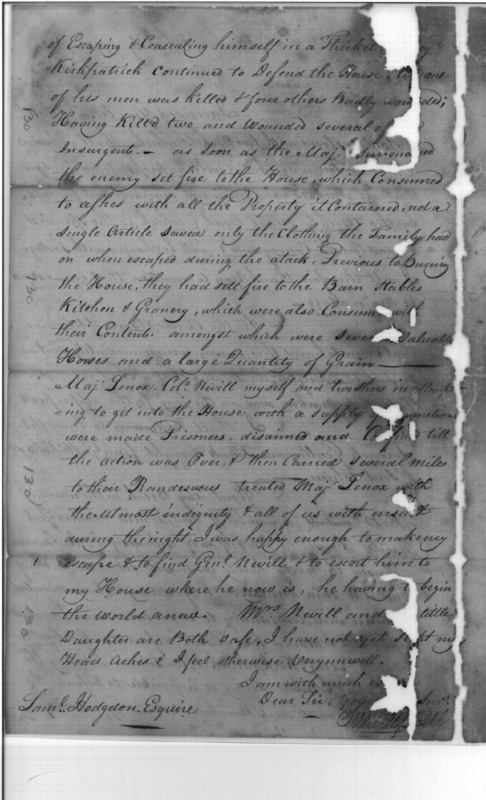 of Escaping & Concealing himself in a Thicket
Kirkpatrick Continued to Defend the House
of his men was Killed & four others Badly wounded;
Having Killed two and Wounded several of
Insurgents.— as soon as the Majr. Surrendered
the enemy set fire to the House, which Consumed
to ashes with all the Property it Contained, not a
single Article saved only the Clothing the Family had
on when escaped during the attack. Previous to Burning
the House, they had sett fire to the Barn Stables
Kitchen & Granery, which were also Consum with
their Contents amongst which were several valuable
Horses and a large Quantity of Grain—
Majr Lenox, Col. Nevill myself and two others in
ing to git into the House with a supply
were made Prisoners, disarmed and till
the action was Over, & then Carried several miles
to their Randesvous treated Majr Lenox with
the utmost indignity & all of us with insult
during the night, I was happy enough to make my
escape & to find Genl. Nevill & to escort him to
my House where he now is, he having to begin
the world anew. Mrs Nevill and little
Daughter are Both safe, I have not yet my
Head Aches & I feel otherwise very unwell.
I am with much
Dear Sir,
Saml. Hodgdon Esquire